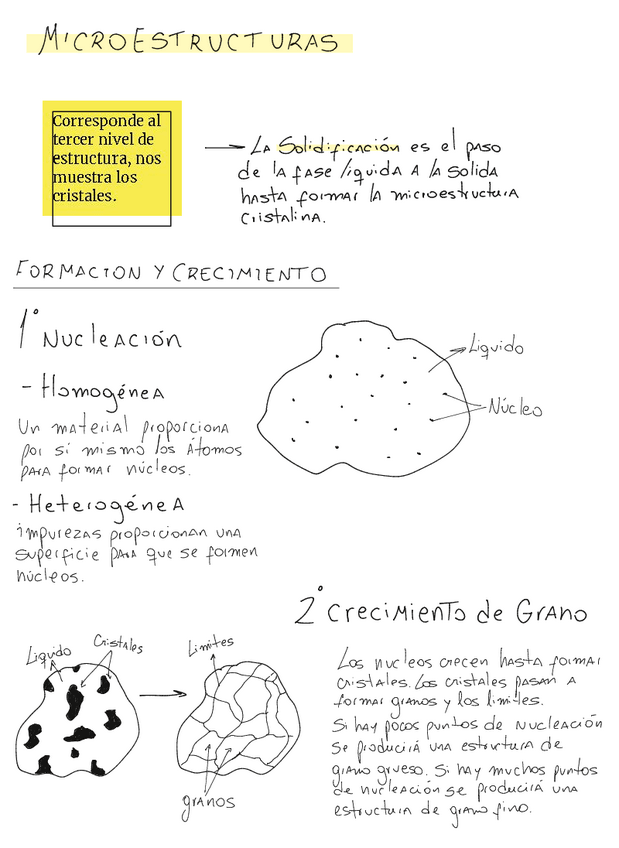 MICROESTRUCTURAS
Corresponde al
tercer nivel de
estructura, nos
muestra los
cristales.
La Solidificación es el paso
de la fase líquida a la solida
hasta formar la microestructura
cristalina.
FORMACION Y CRECIMIENTO
1° Nucleación
- Homogénea
Un material proporciona
por sí mismo los Átomos
para formar núcleos.
Liquido
Núcleo
- Heterogénea
impurezas proporcionan una
superficie para que se formen
núcleos.
2° Crecimiento de Grano
Liquido
Cristales
Limites
granos
Los nucleos crecen hasta formar
cristales. Los cristales pasan a
formar granos y los limites.
Si hay pocos puntos de nucleación
se producirá una estructura de
grano grueso. Si hay muchos puntos
de nucleación se producirá una
estructura de grano fino.